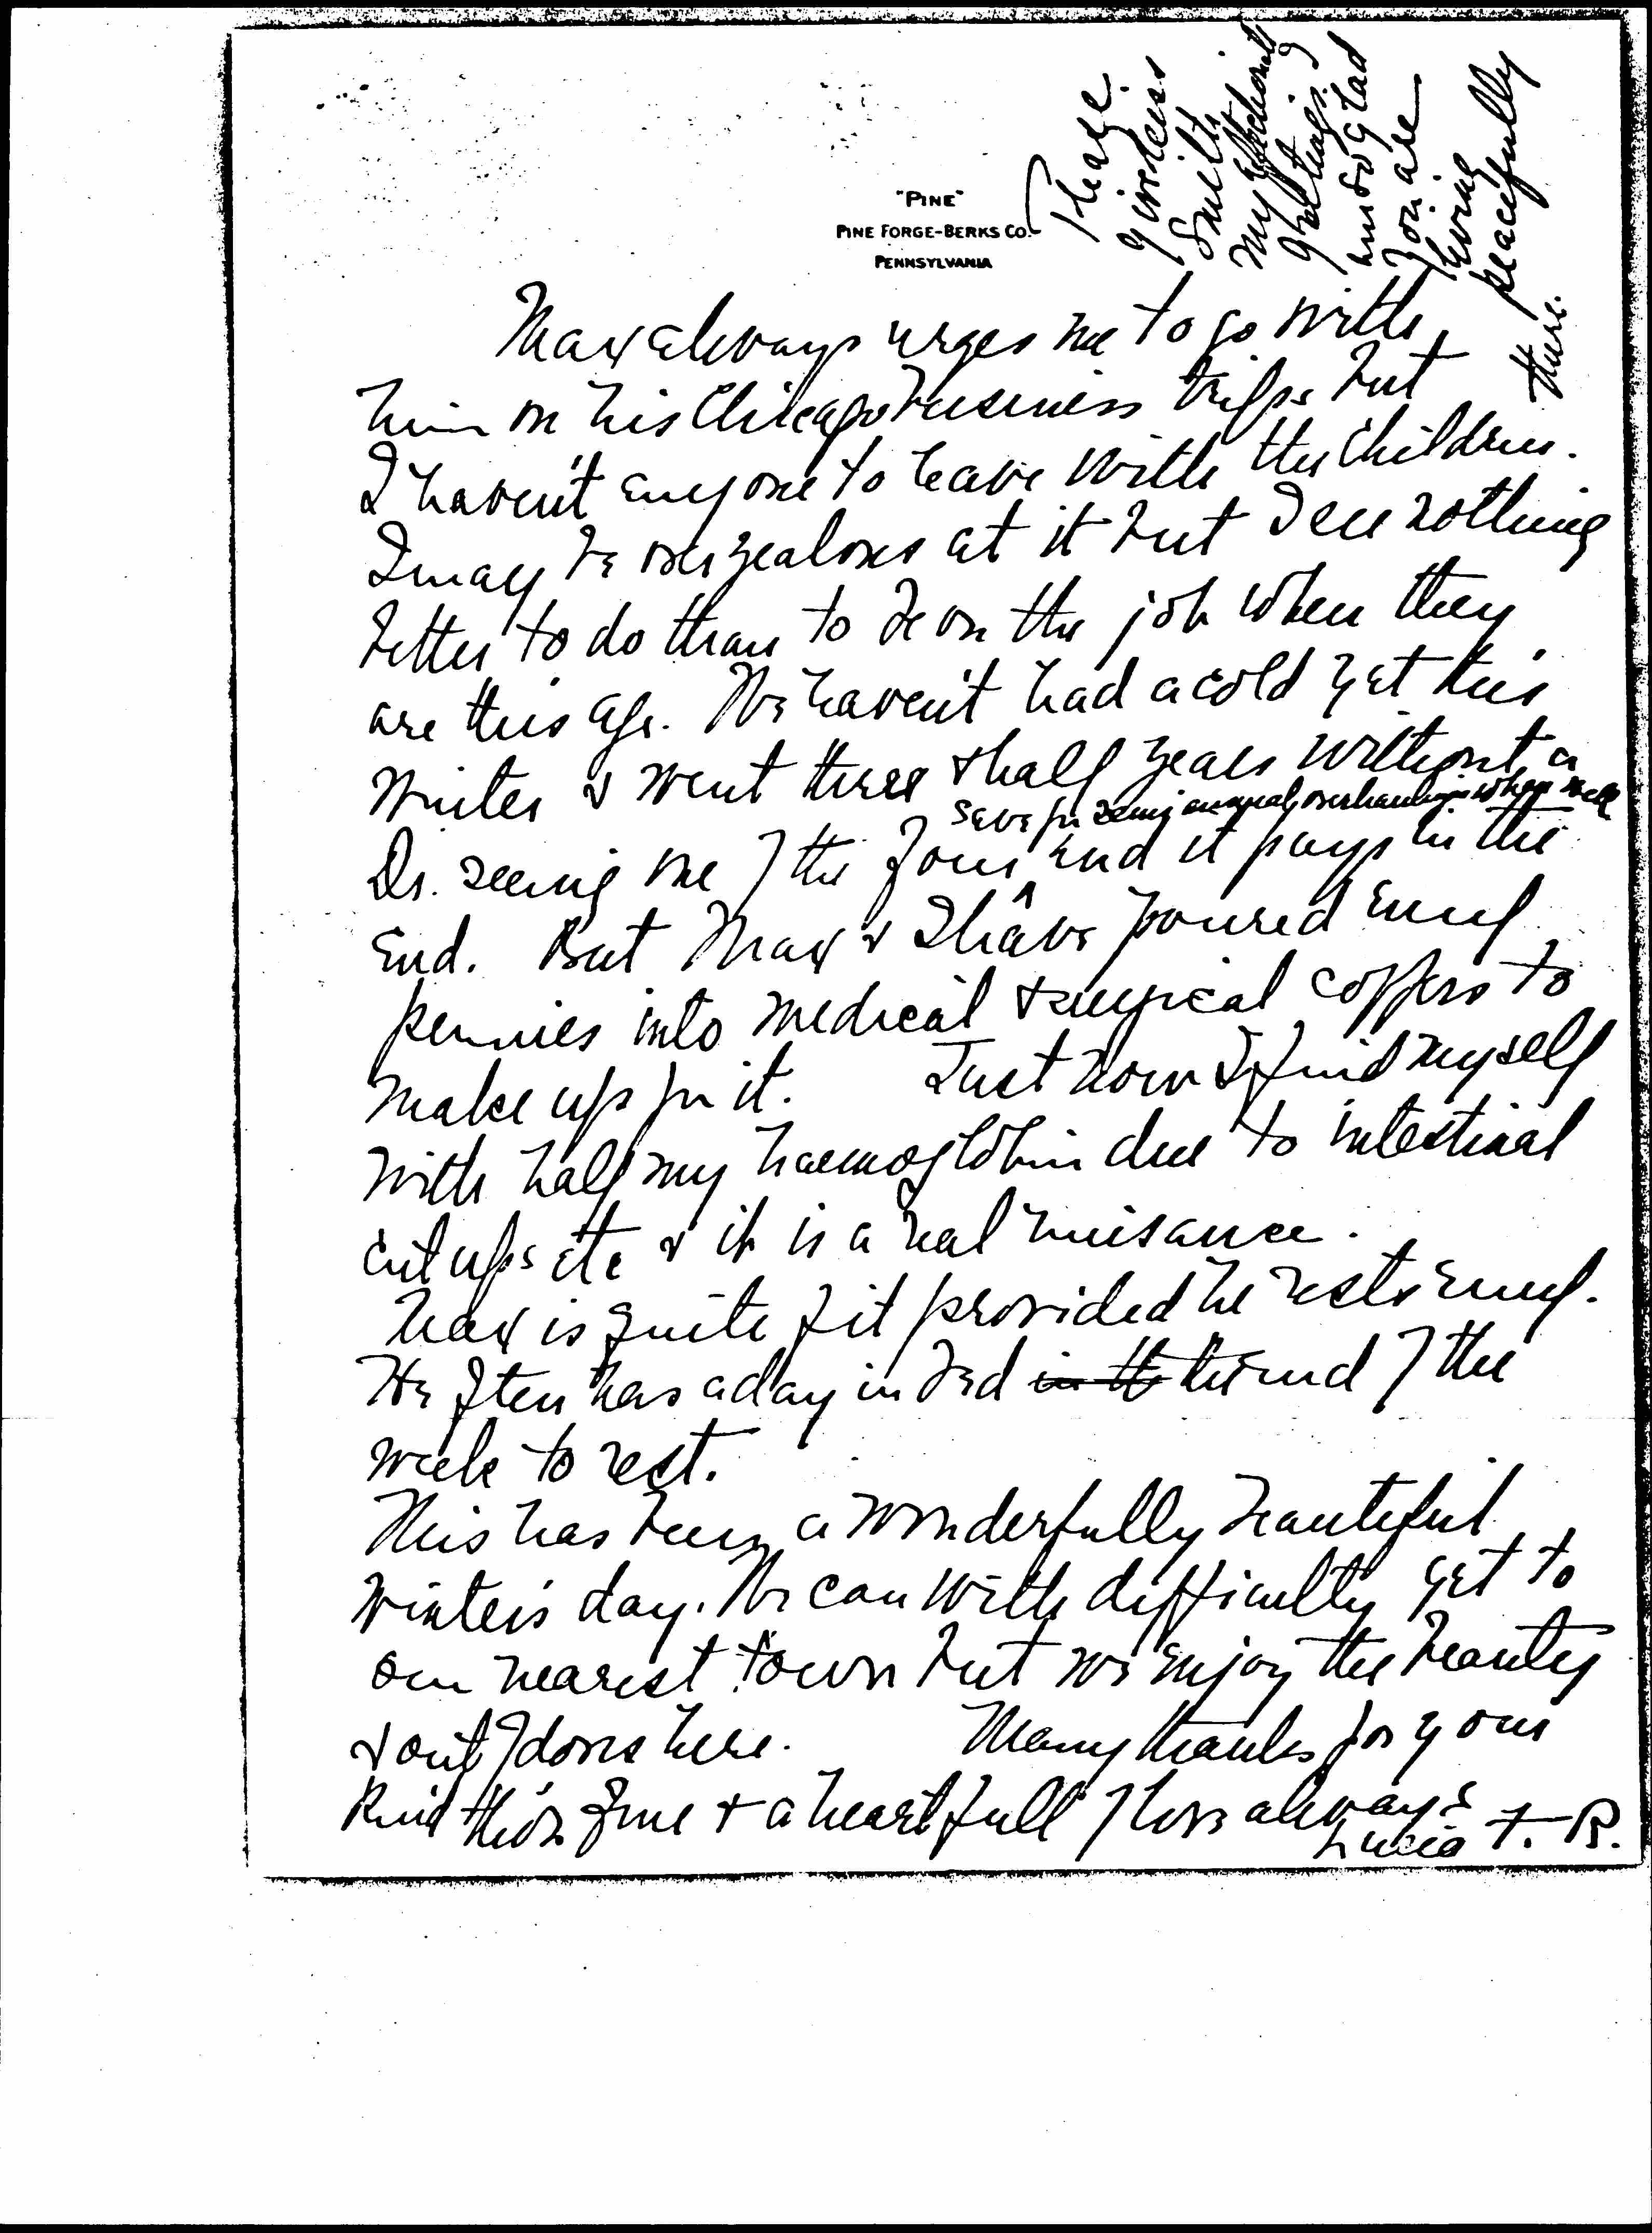 "PINE"
PINE FORGE-BERKS CO.
PENNSYLVANIA
Please
give Miss
Smith
my affectionate
greetings.
am so glad
you are
living
peacefully
there.
Max always urges me to go with
him on his Chicago business trips but
I haven't anyone to leave with the children.
I may be over zealous at it but I see nothing
better to do than to be on the job when they
are this age. We haven't had a cold yet this
winter & went three & half years without a
save for being annually overhauled when well
Dr. seeing one of the four and it pays in the
end. But Max & I have poured enuf
pennies into medical & surgical coffers to
make up for it. Just now I find myself
with half my haemoglobin due to intestinal
cut ups etc & it is a real nuisance.
Max is quite fit provided he rests enuf.
He often has a day in bed in the the end of the
week to rest.
This has been a wonderfully beautiful
winter's day. We can with difficulty get to
our nearest town but we enjoy the beauty
& out of doors here. Many thanks for your
kind & a heart full of love always
Lucia T. R.